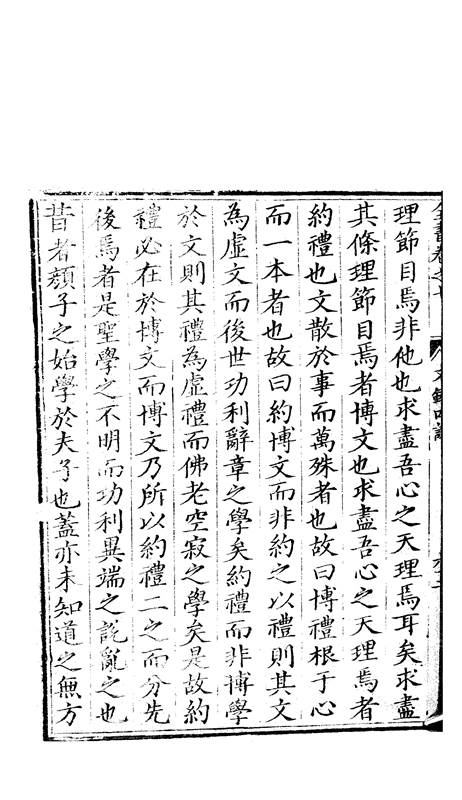 理節目焉非他也求盡吾心之天理焉耳矣求盡
其條理節目焉者博文也求盡吾心之天理焉者
約禮也文散於事而萬殊者也故曰博禮根于心
而一本者也故曰約博文而非約之以禮則其文
為虛文而後世功利辭章之學矣約禮而非博學
於文則其禮為虛禮而佛老空寂之學矣是故約
禮必在於博文而博文乃所以約禮二之而分先
後焉者是聖學之不明而功利異端之説亂之也
昔者顏子之始學於夫子也蓋亦未知道之無方